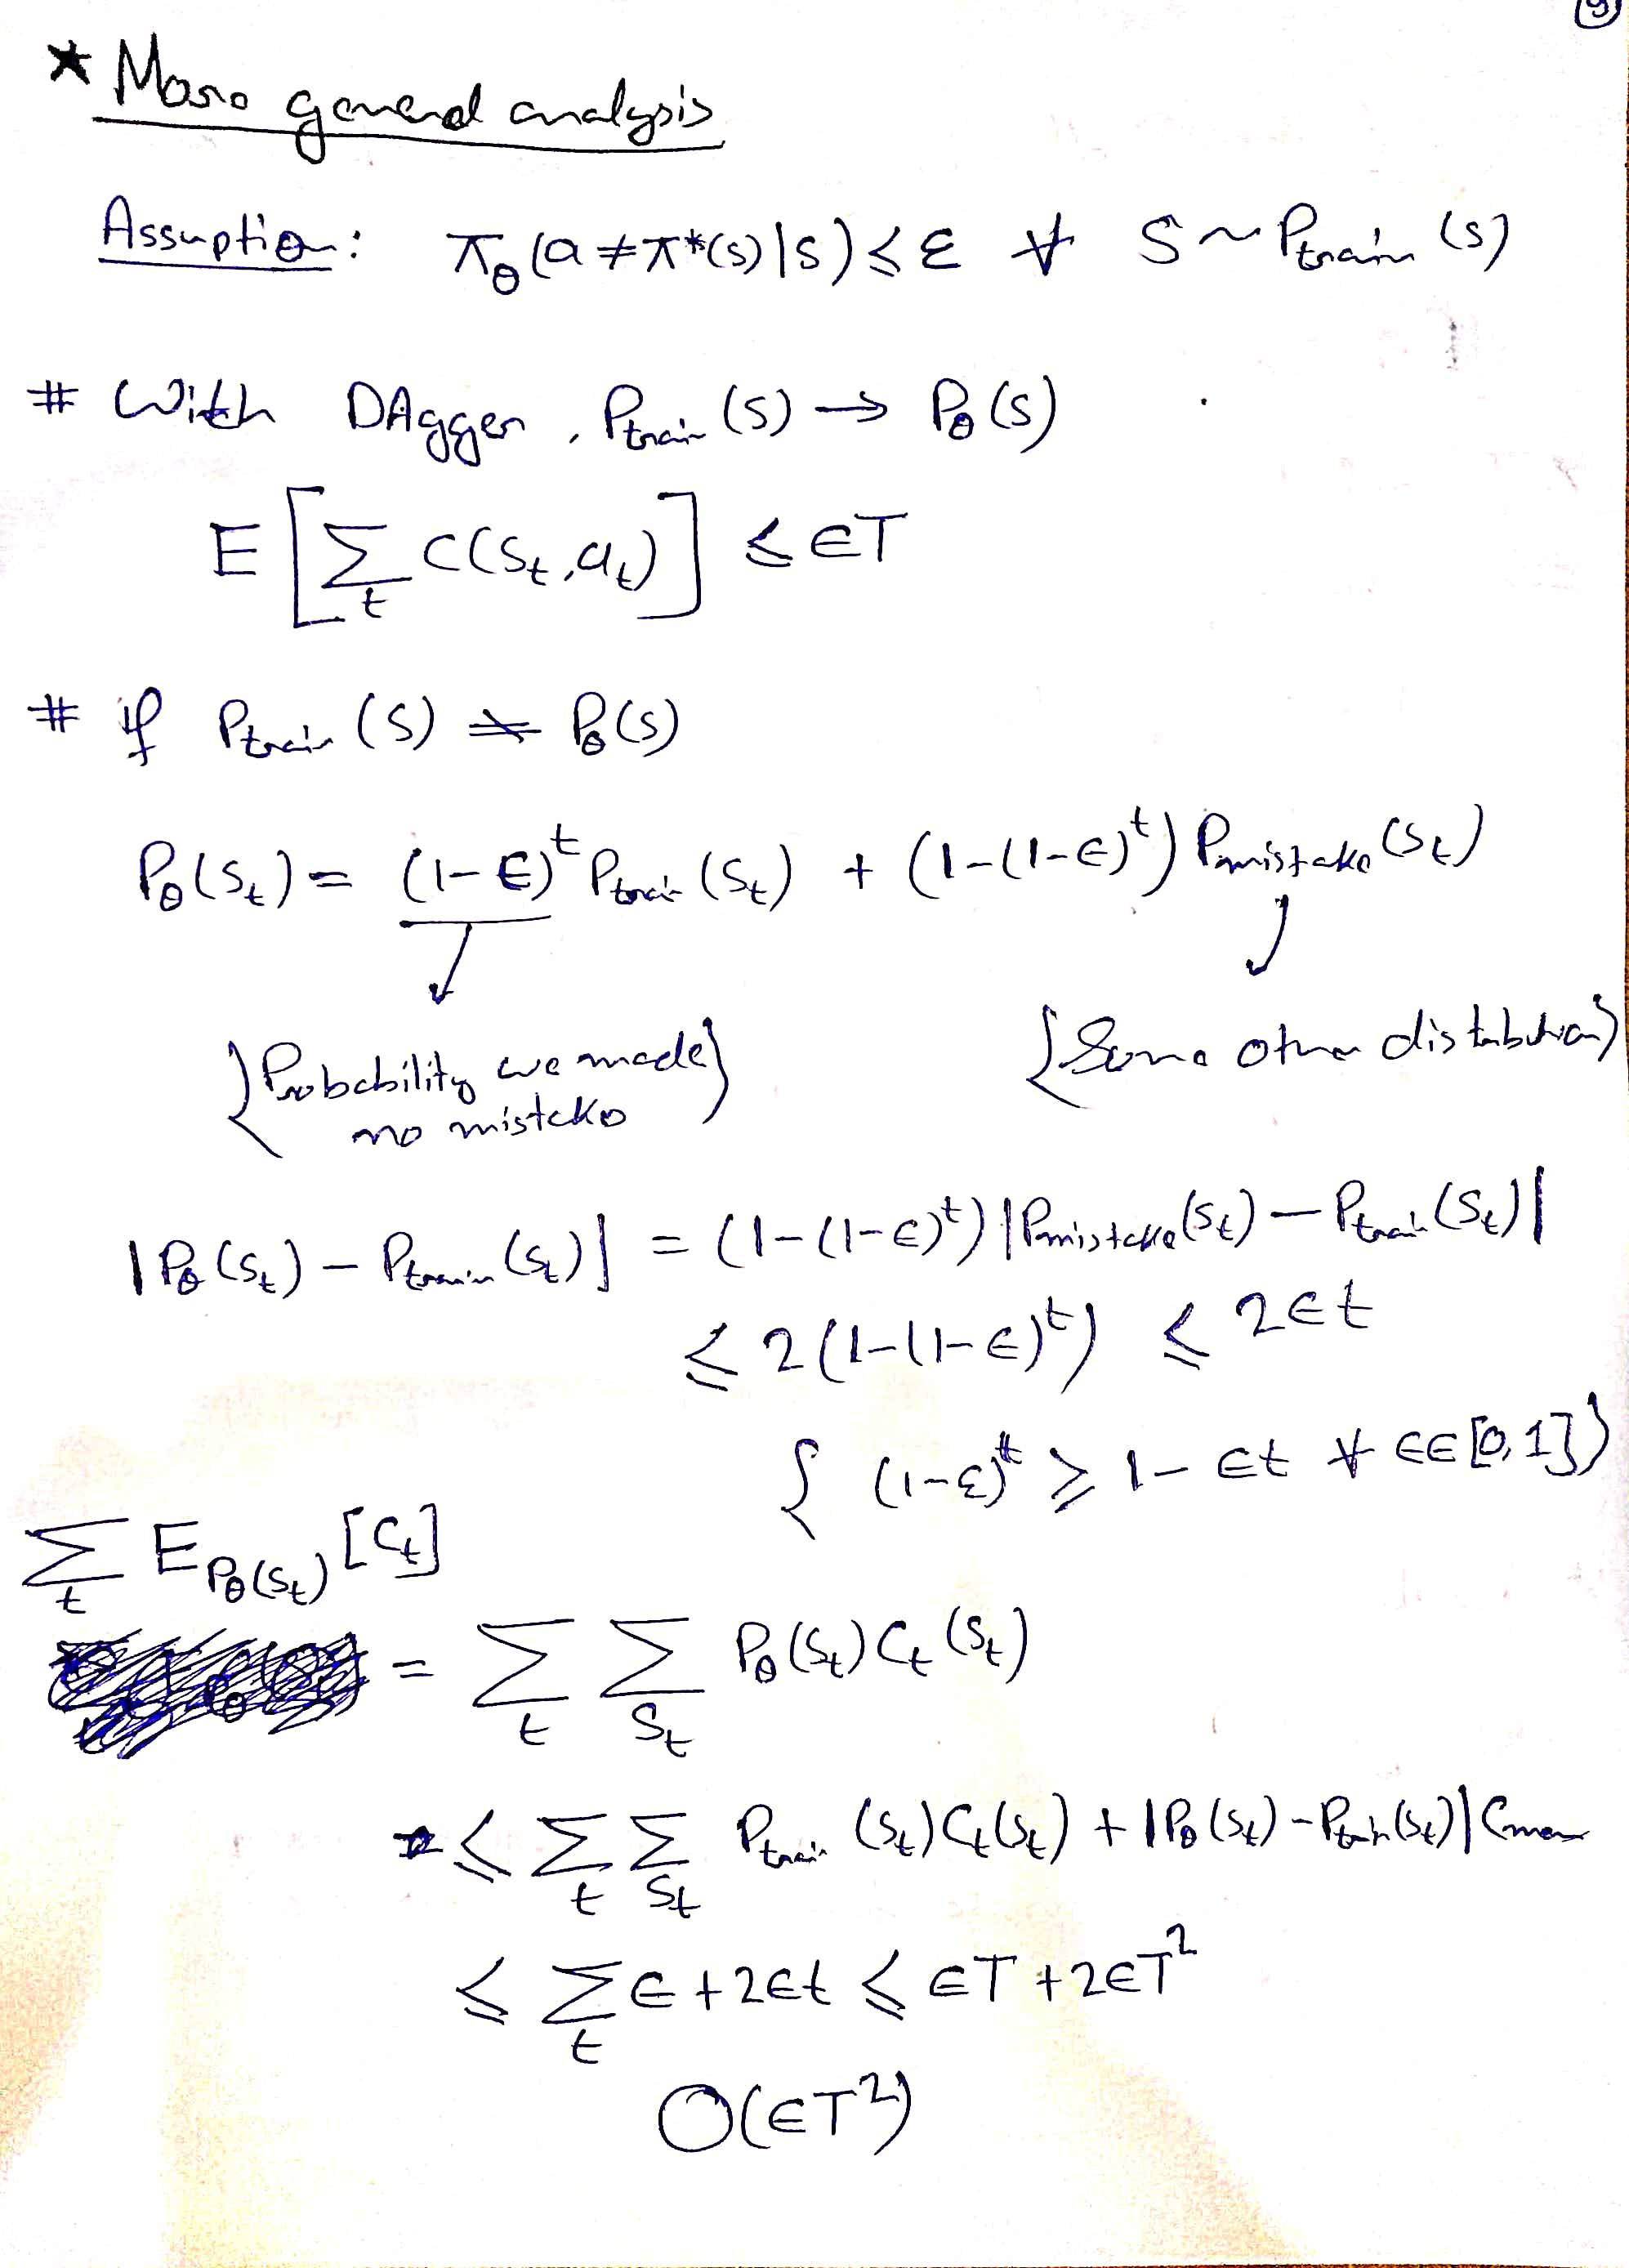 9
* More general analysis
Assuption: π_θ(a ≠ π*(s)|s) ≤ ε ∀ S ~ P_train(s)
# With DAgger, P_train(s) → P_θ(s)
E[Σ_t C(s_t, a_t)] ≤ εT
# if P_train(s) ≠ P_θ(s)
P_θ(s_t) = (1-ε)^t P_train(s_t) + (1-(1-ε)^t) P_mistake(s_t)
{Probability we made no mistake}
{Some other distribution}
|P_θ(s_t) - P_train(s_t)| = (1-(1-ε)^t) |P_mistake(s_t) - P_train(s_t)|
≤ 2(1-(1-ε)^t) ≤ 2εt
{(1-ε)^t ≥ 1-εt ∀ ε∈[0,1]}
Σ_t E_{P_θ(s_t)}[C_t]
= Σ_t Σ_{s_t} P_θ(s_t) C_t(s_t)
≤ Σ_t Σ_{s_t} P_train(s_t) C_t(s_t) + |P_θ(s_t) - P_train(s_t)| C_max
≤ Σ_t ε + 2εt ≤ εT + 2εT²
O(εT²)